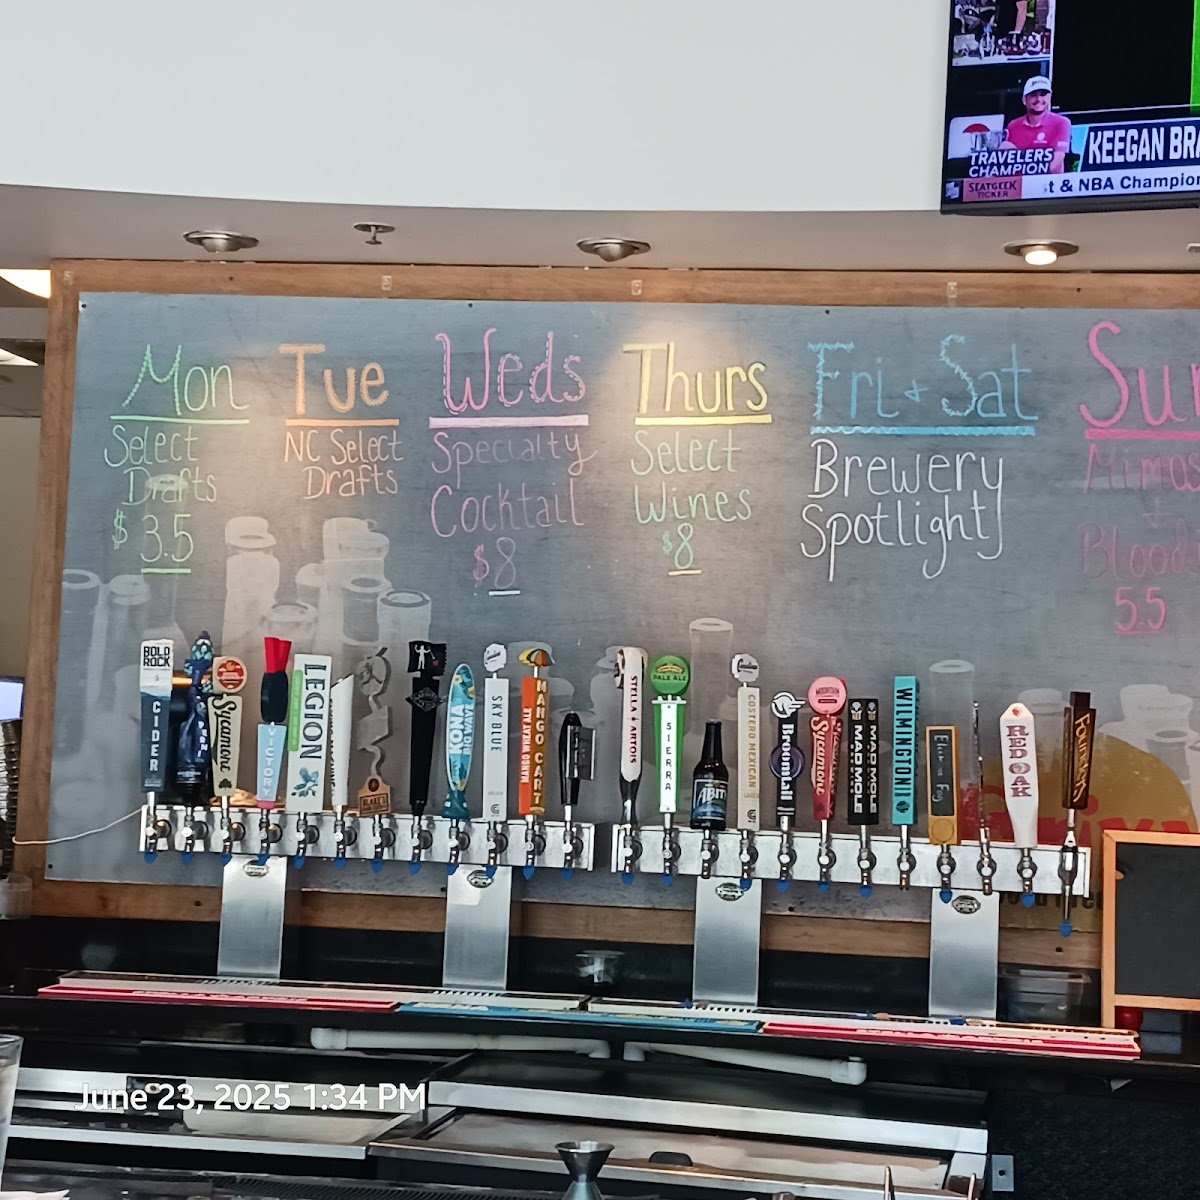 TRAVELERS
CHAMPION
KEEGAN BRA
SEATGEEK
TICKER
t & NBA Champion
Mon
Select
Drafts
$ 3.5
Tue
NC Select
Drafts
Weds
Specialty
Cocktail
$8
Thurs
Select
Wines
$8
Fri + Sat
Brewery
Spotlight
Sun
Mimos
+
Blood
5.5
BOLD
ROCK
CIDER
Sycamore
VICTORY
LEGION
KONA
BIG WAVE
SKY BLUE
MANGO WHEAT ALE
MANGO CART
STELLA ARTOIS
PALE ALE
SIERRA
ABITA
COSTERO MEXICAN
BroomTail
Sycamore
MAD MOLE
MAD MOLE
WILMINGTON
RED OAK
Founders
June 23, 2025 1:34 PM